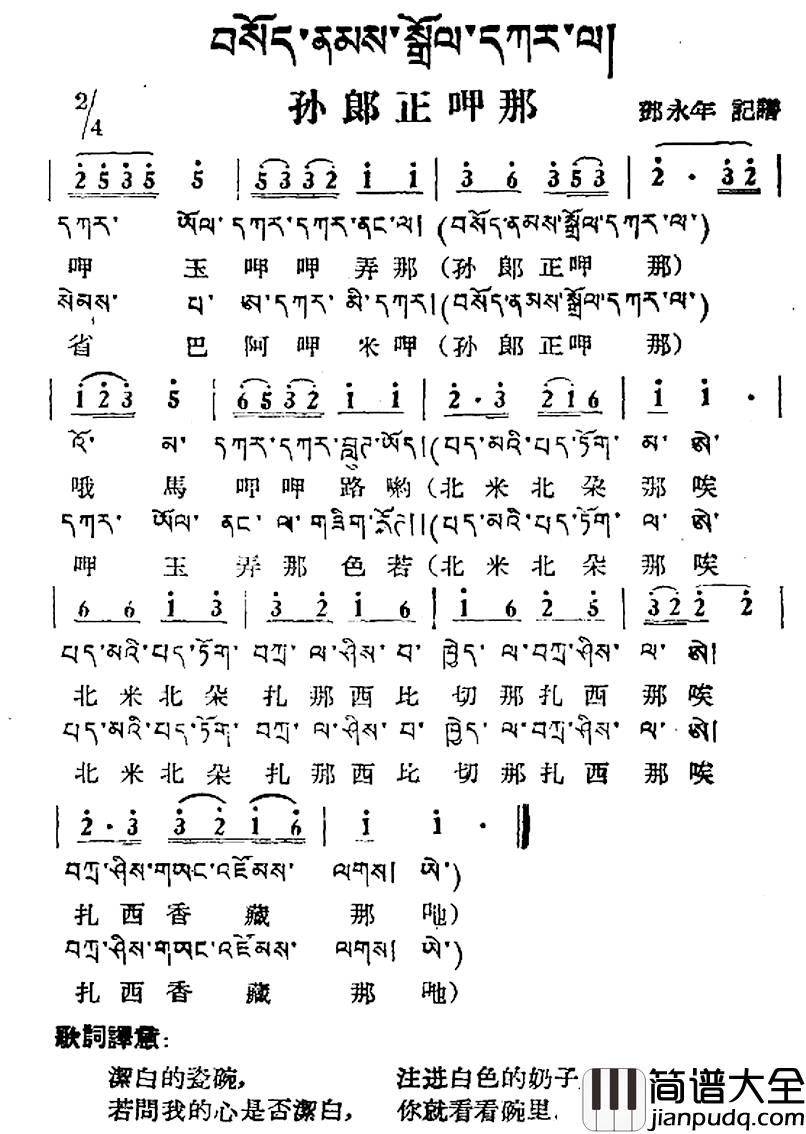 བསོད་ནམས་སྒྲོལ་དཀར་ལ།
2/4 孙郎正呷那 鄧永年 記譜
2 5 3 5 5 | 5 3 3 2 1 1 | 3 6 3 5 3 | 2 · 3 2 |
དཀར་ ཨོལ་ དཀར་དཀར་ནང་ལ། (བསོད་ནམས་སྒྲོལ་དཀར་ལ་)
呷 玉 呷 呷 弄 那 (孙 郎 正 呷 那)
སེམས་ པ་ ཨ་དཀར་ མི་དཀར། (བསོད་ནམས་སྒྲོལ་དཀར་ལ་)
省 巴 阿 呷 米 呷 (孙 郎 正 呷 那)
1 2 3 5 | 6 5 3 2 1 1 | 2 · 3 2 1 6 | 1 1 · |
འོ་ མ་ དཀར་དཀར་བླུཊ་ཡོད། (པད་མའི་པད་ཏོག་ མ་ ཨེ་
哦 馬 呷 呷 路 喲 (北 米 北 朶 那 唉
དཀར་ ཨོལ་ ནང་ ལ་ གཟིག་རོཊ།། (པད་མའི་པད་ཏོག་ ལ་ ཨེ་
呷 玉 弄 那 色 若 (北 米 北 朶 那 唉
6 6 1 3 | 3 2 1 6 | 1 6 2 5 | 3 2 2 2 |
པད་མའི་པད་ཏོག་ བཀྲ་ ལ་ཤིས་ བ་ ཁྱེད་ ལ་བཀྲ་ཤིས་ ལ་ ཨེ།
北 米 北 朶 扎 那 西 比 切 那 扎 西 那 唉
པད་མའི་པད་ཏོག་ བཀྲ་ ལ་ཤིས་ བ་ ཁྱེད་ ལ་བཀྲ་ཤིས་ ལ་ ཨེ།
北 米 北 朶 扎 那 西 比 切 那 扎 西 那 唉
2 · 3 3 2 1 6 | 1 1 · ‖
བཀྲ་ཤིས་གཡང་འཛོམས་ ལགས། ཨེ་)
扎 西 香 藏 那 吔)
བཀྲ་ཤིས་གཡང་འཛོམས་ ལགས། ཨེ་)
扎 西 香 藏 那 吔)
歌詞譯意:
潔白的瓷碗, 注进白色的奶子
若問我的心是否潔白, 你就看看碗里.
简谱大全
jianpudq.com